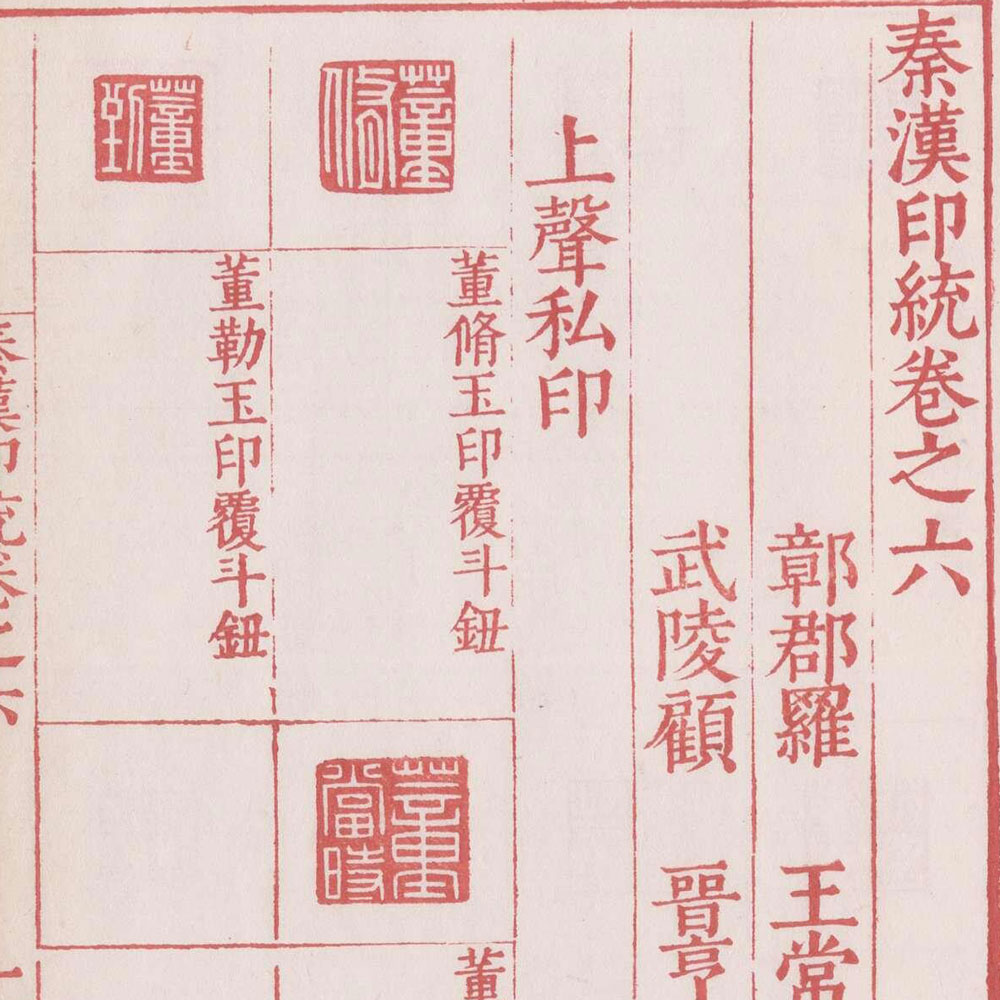 秦漢印統卷之六
鄣郡羅 王常
武陵顧 晋亨
上聲私印
董脩
董脩玉印覆斗鈕
董當時
董
董勒玉印覆斗鈕
秦漢印統卷之六